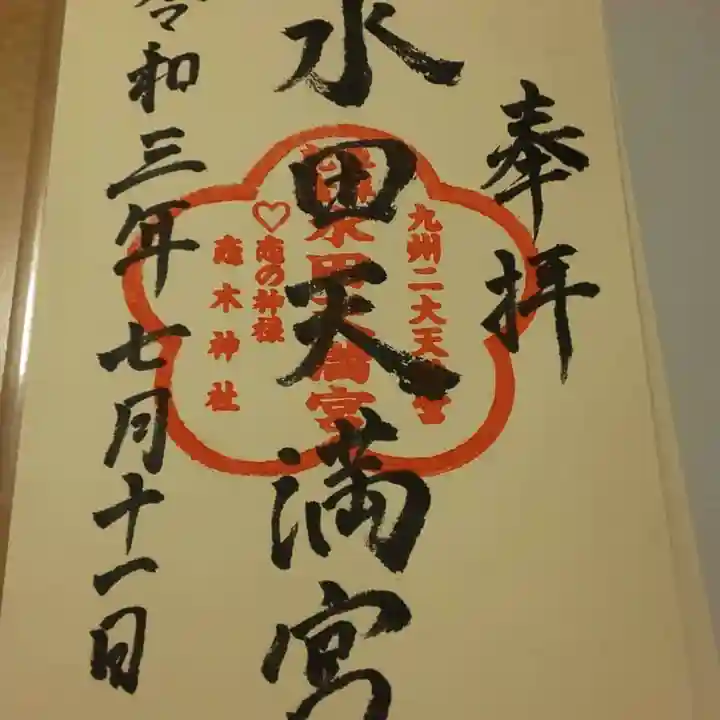 奉拝
水田天満宮
令和三年七月十一日
九州二大天満宮
水田天満宮
♡恋の神様
恋木神社